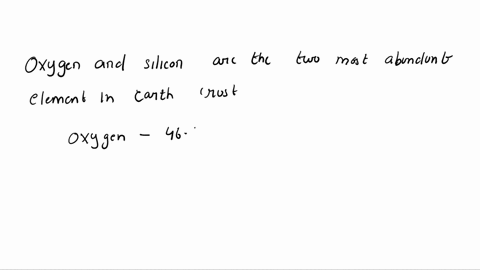 Oxygen and silicon are the two most abundant
element in Earth crust
Oxygen - 46.